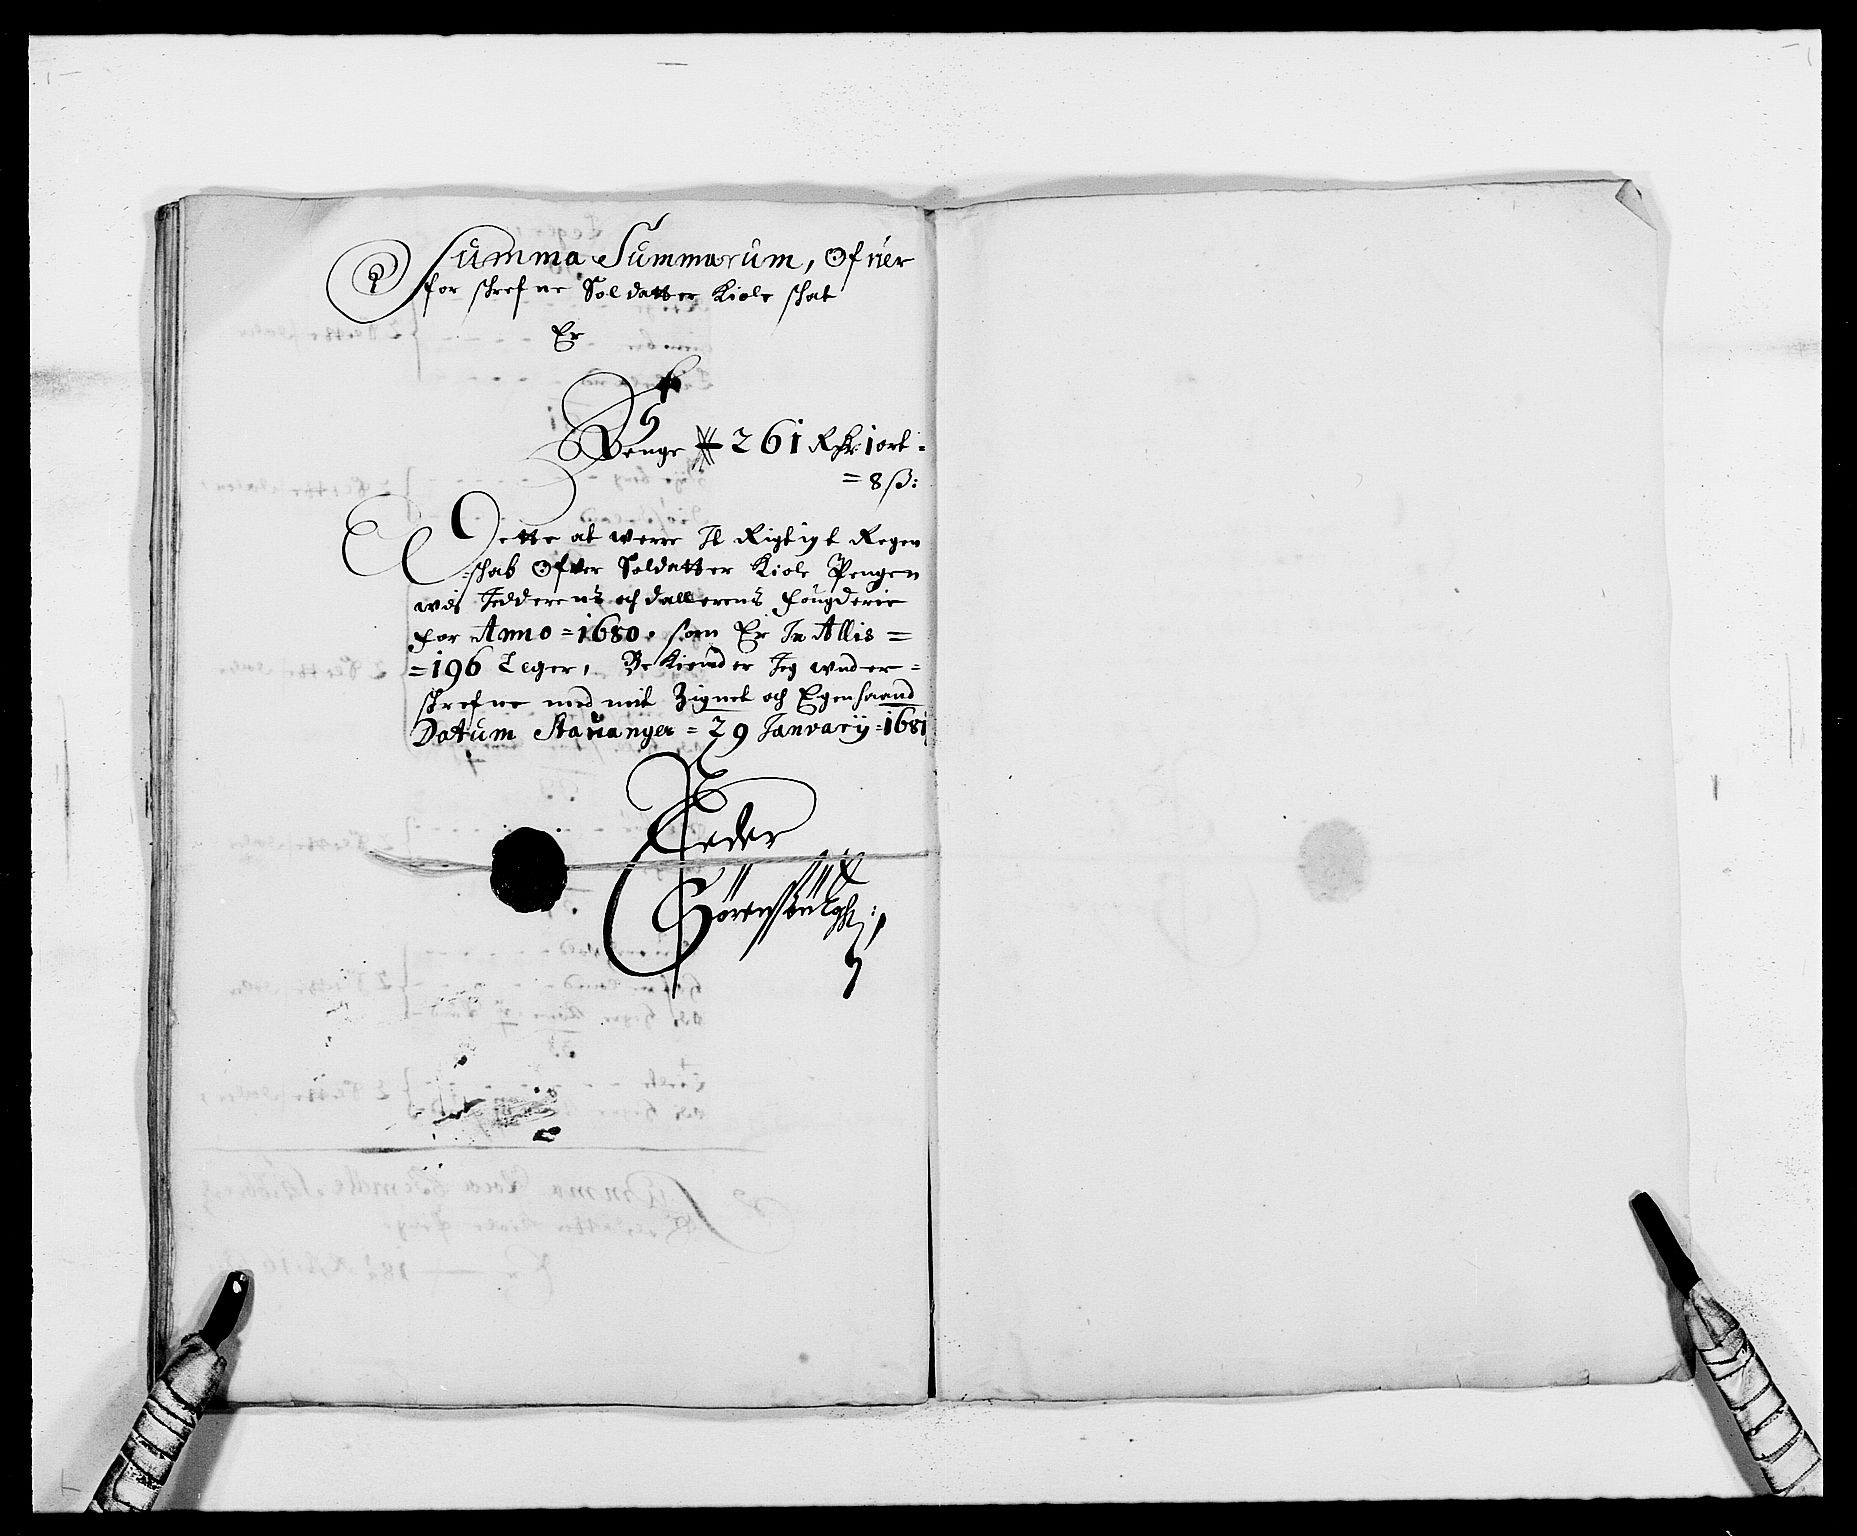 Summa Summarum, Ofuer
for schrefne Soldatter Kiole schat
Er
Penge 261 Rdr 1 ort =
= 8 ß:
Dette at werre It Rigtigt Regen
schab Ofver Soldatter Kiole Pengen
wdj Jedderens och dallerens fougderie
for Anno = 1680. som Er In Allis =
= 196 Leger, Bekiender Jeg under =
schrefne med mit Zignet och Egenhaand
Datum Stauanger = 29 Januarij = 1681
Peder
Sörenss